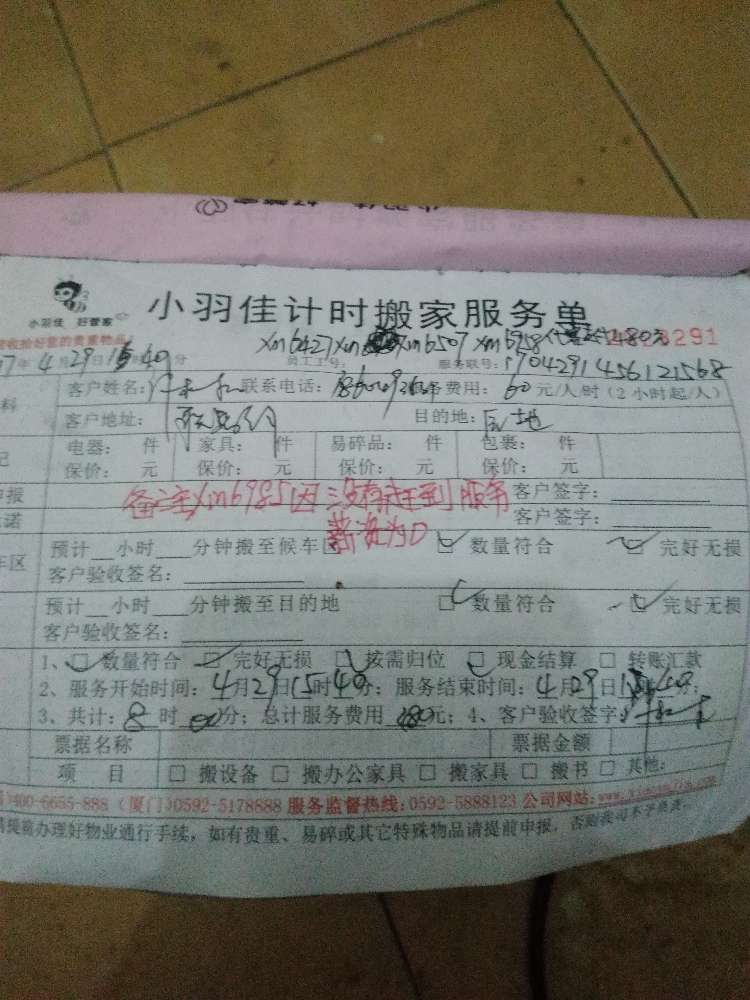 小羽佳计时搬家服务单
小羽佳 好管家
收拾好您的贵重物品
7年4月29日15时40分 员工工号: xm6427 xm6507 xm6958 服务联号: 1704291456121568
客户姓名: 联系电话: 服务费用: 60元/人/时(2小时起/人)
客户地址: 目的地:
电器: 件 家具: 件 易碎品: 件 包裹: 件
保价: 元 保价: 元 保价: 元 保价: 元
备注xm6985因没有赶到服务 客户签字:
薪资为0 客户签字:
预计 小时 分钟搬至候车区 □ 数量符合 □ 完好无损
客户验收签名:
预计 小时 分钟搬至目的地 □ 数量符合 □ 完好无损
客户验收签名:
1、□ 数量符合 □ 完好无损 □ 按需归位 □ 现金结算 □ 转账汇款
2、服务开始时间: 4月29日15时40分; 服务结束时间: 4月29日
3、共计: 8时00分; 总计服务费用480元; 4、客户验收签字:
票据名称 票据金额
项 目 □ 搬设备 □ 搬办公家具 □ 搬家具 □ 搬书 □ 其他:
400-6655-888 (厦门)0592-5178888 服务监督热线:0592-5888123 公司网站:
提前办理好物业通行手续,如有贵重、易碎或其它特殊物品请提前申报,否则我司不予负责。